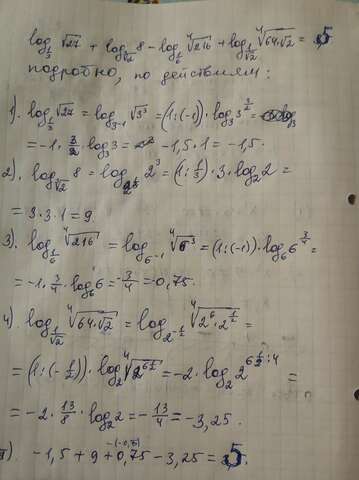 log_{1/3} √27 + log_{∛2} 8 - log_{1/6} ⁴√216 + log_{1/√2} ⁴√(64·√2) = 5
подробно, по действиям:
1). log_{1/3} √27 = log_{3^{-1}} √3³ = (1:(-1))·log_3 3^{3/2} =
= -1·3/2 log_3 3 = -1,5·1 = -1,5.
2). log_{∛2} 8 = log_{2^{1/3}} 2³ = (1:1/3)·3·log_2 2 =
= 3·3·1 = 9.
3). log_{1/6} ⁴√216 = log_{6^{-1}} ⁴√6³ = (1:(-1))·log_6 6^{3/4} =
= -1·3/4·log_6 6 = -3/4 = -0,75.
4). log_{1/√2} ⁴√(64·√2) = log_{2^{-1/2}} ⁴√(2⁶·2^{1/2}) =
= (1:(-1/2))·log_2 ⁴√(2^{6 1/2}) = -2·log_2 2^{6 1/2 : 4} =
= -2·13/8·log_2 2 = -13/4 = -3,25.
-(-0,75)
-1,5 + 9 + 0,75 - 3,25 = 5.